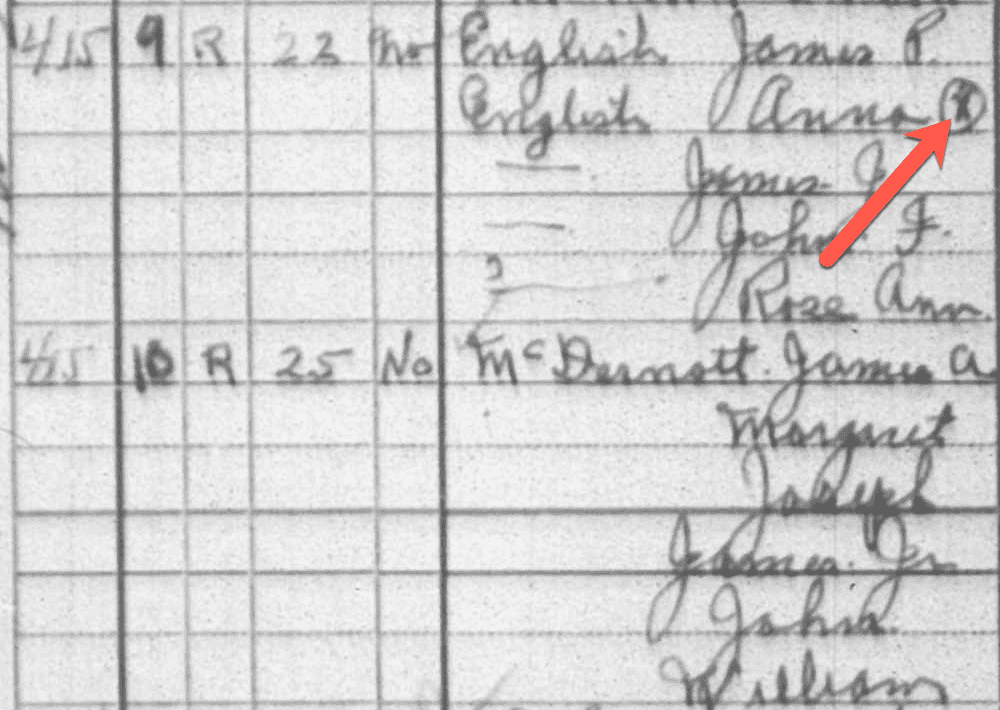 415 9 R 22 No English James P.
English Anna Ⓧ
— James J
— John F.
— Rose Ann.
415 10 R 25 No McDermott. James A.
Margaret
Joseph
James. Jr.
John.
William